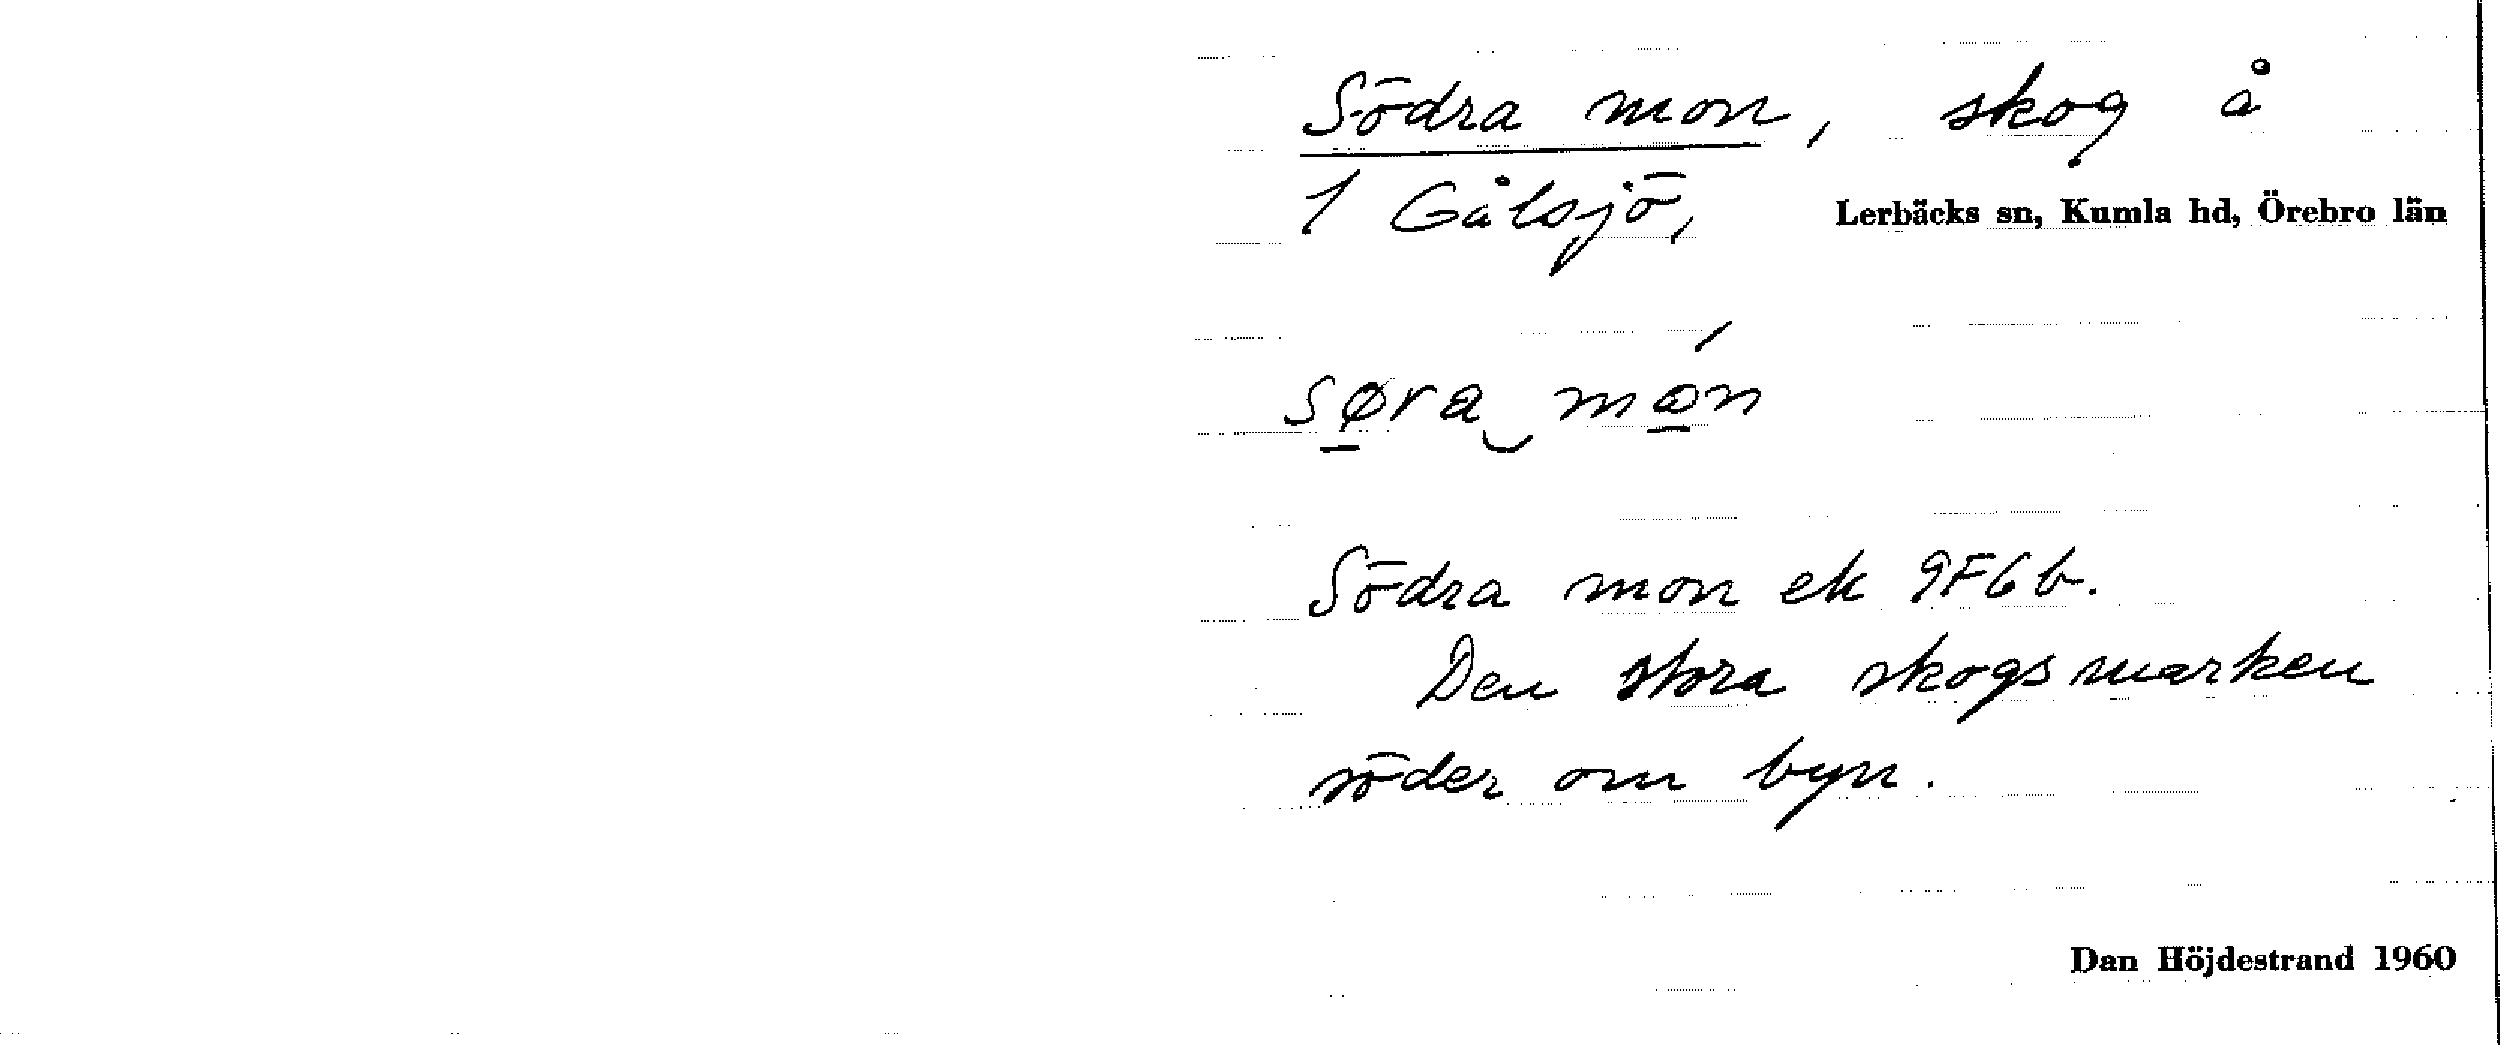 Södra mon, skog å
1 Gålsjö, Lerbäcks sn, Kumla hd, Örebro län
søra mon
Södra mon ek 9F6b.
Den stora skogsmarken
söder om byn.
Dan Höjdestrand 1960